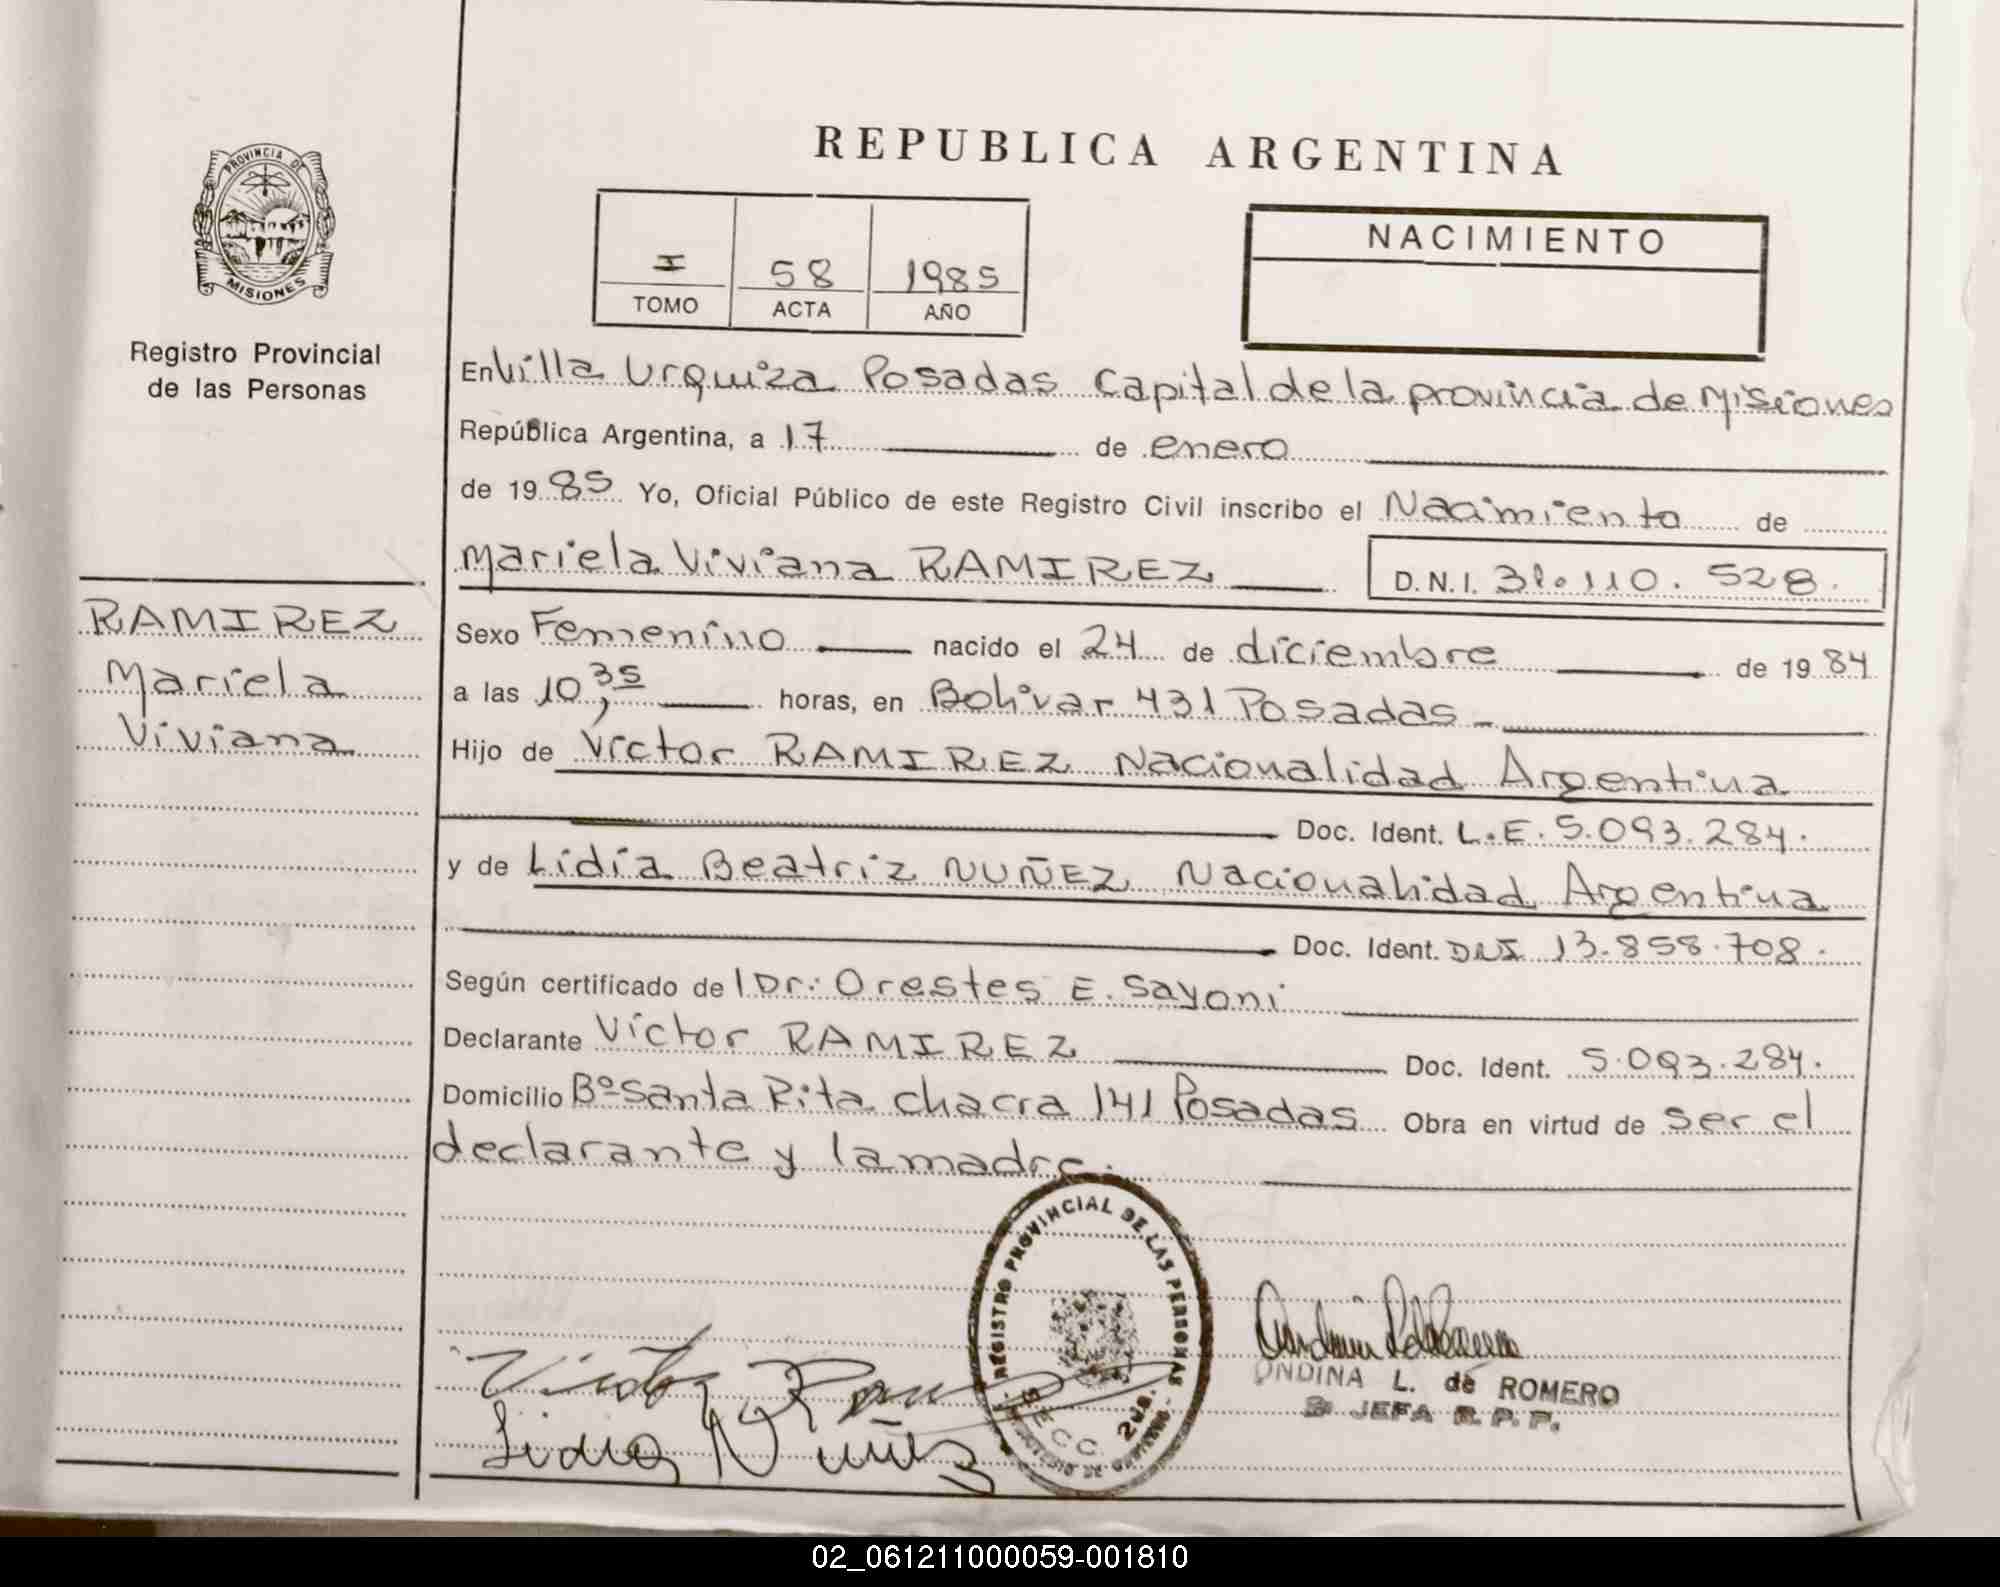 REPUBLICA ARGENTINA
PROVINCIA DE
MISIONES
Registro Provincial
de las Personas
I 58 1985
TOMO ACTA AÑO
NACIMIENTO
En Villa Urquiza Posadas Capital de la provincia de Misiones
República Argentina, a 17 de enero
de 1985 Yo, Oficial Público de este Registro Civil inscribo el Nacimiento de
Mariela Viviana RAMIREZ D.N.I. 31.110.528.
RAMIREZ
Mariela
Viviana
Sexo Femenino nacido el 24 de diciembre de 1984
a las 10,35 horas, en Bolivar 431 Posadas
Hijo de Victor RAMIREZ Nacionalidad Argentina
Doc. Ident. L.E. 5.093.284.
y de Lidia Beatriz NUÑEZ Nacionalidad Argentina
Doc. Ident. DNI 13.858.708.
Según certificado de l Dr: Orestes E. Sayoni
Declarante Victor RAMIREZ Doc. Ident. 5.093.284.
Domicilio Bº Santa Rita chacra 141 Posadas Obra en virtud de ser el
declarante y la madre.
REGISTRO PROVINCIAL DE LAS PERSONAS
Victor
Lidia Nuñez
ONDINA L. de ROMERO
JEFA R. P. P.
02_061211000059-001810